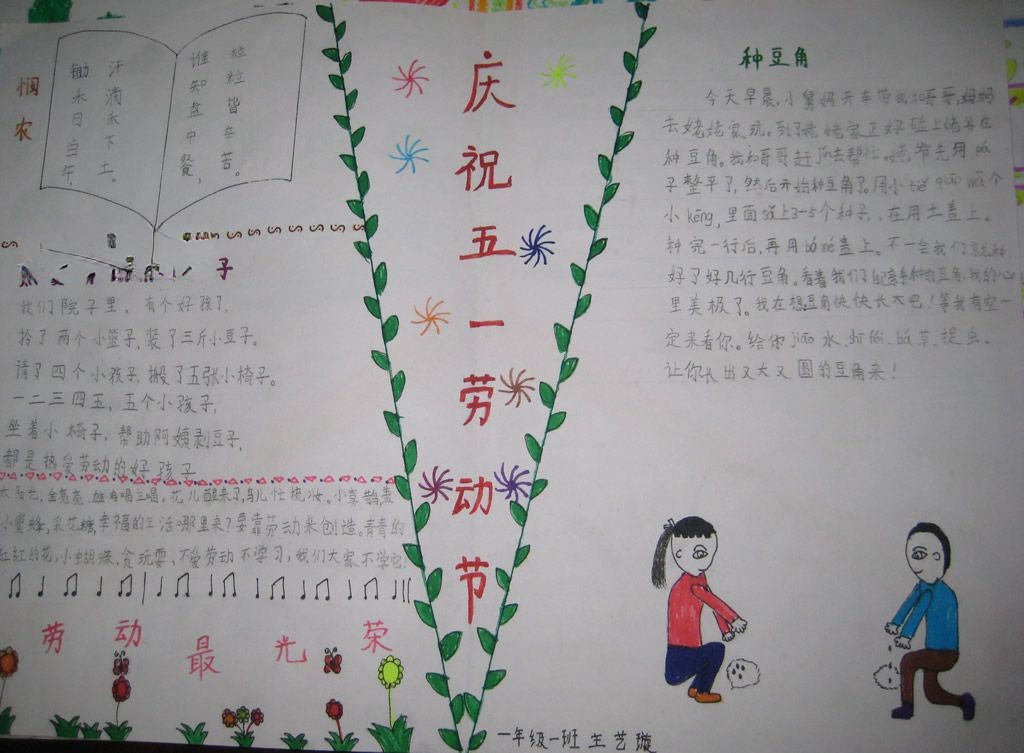 悯农
锄禾日当午，
汗滴禾下土。
谁知盘中餐，
粒粒皆辛苦。
子
我们院子里，有个好孩子，
拎了两个小篮子，装了三斤小豆子。
请了四个小孩子，搬了五张小椅子。
一二三四五，五个小孩子，
坐着小椅子，帮助阿姨剥豆子，
都是热爱劳动的好孩子
太阳光，金亮亮，雄鸡唱三唱。花儿醒来了，鸟儿忙梳妆。小喜鹊，盖
小蜜蜂，采花糖，幸福的生活哪里来？要靠劳动来创造。青青的
红红的花，小蝴蝶，贪玩耍，不爱劳动不学习，我们大家不学它
劳动最光荣
庆祝五一劳动节
种豆角
今天早晨，小舅妈开车带我和哥哥，妈妈
去姥姥家玩。到了姥姥家正好碰上姥爷在
种豆角。我和哥哥赶 去帮忙。 先用 pá
子整平了，然后开始种豆角了。用小 wā 个
小 kēng，里面 上3-5个种子，在用土盖上。
种完一行后，再用 盖上。不一会我们就种
好了好几行豆角。看着我们 种的豆角，我的心
里美极了。我在想豆角快快长大吧！等我有空一
定来看你。给你 jiāo 水、 féi、bá 草、捉虫。
让你长出又大又圆的豆角来！
一年级一班 王艺璇